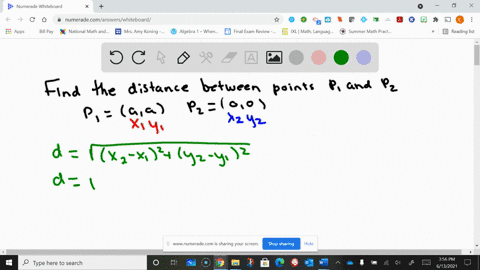 Numerade Whiteboard
numerade.com/answers/whiteboard/
Apps
Bill Pay
National Math and...
Mrs. Amy Koning -...
Algebra 1 – When...
Final Exam Review -...
IXL | Math, Languag...
Summer Math Pract...
Reading list
Find the distance between points P₁ and P₂
P₁ = (a, a) P₂ = (0, 0)
x₁ y₁ x₂ y₂
d = √(x₂-x₁)²+(y₂-y₁)²
d =
www.numerade.com is sharing your screen.
Stop sharing
Hide
Type here to search
7:56 PM
6/13/2021